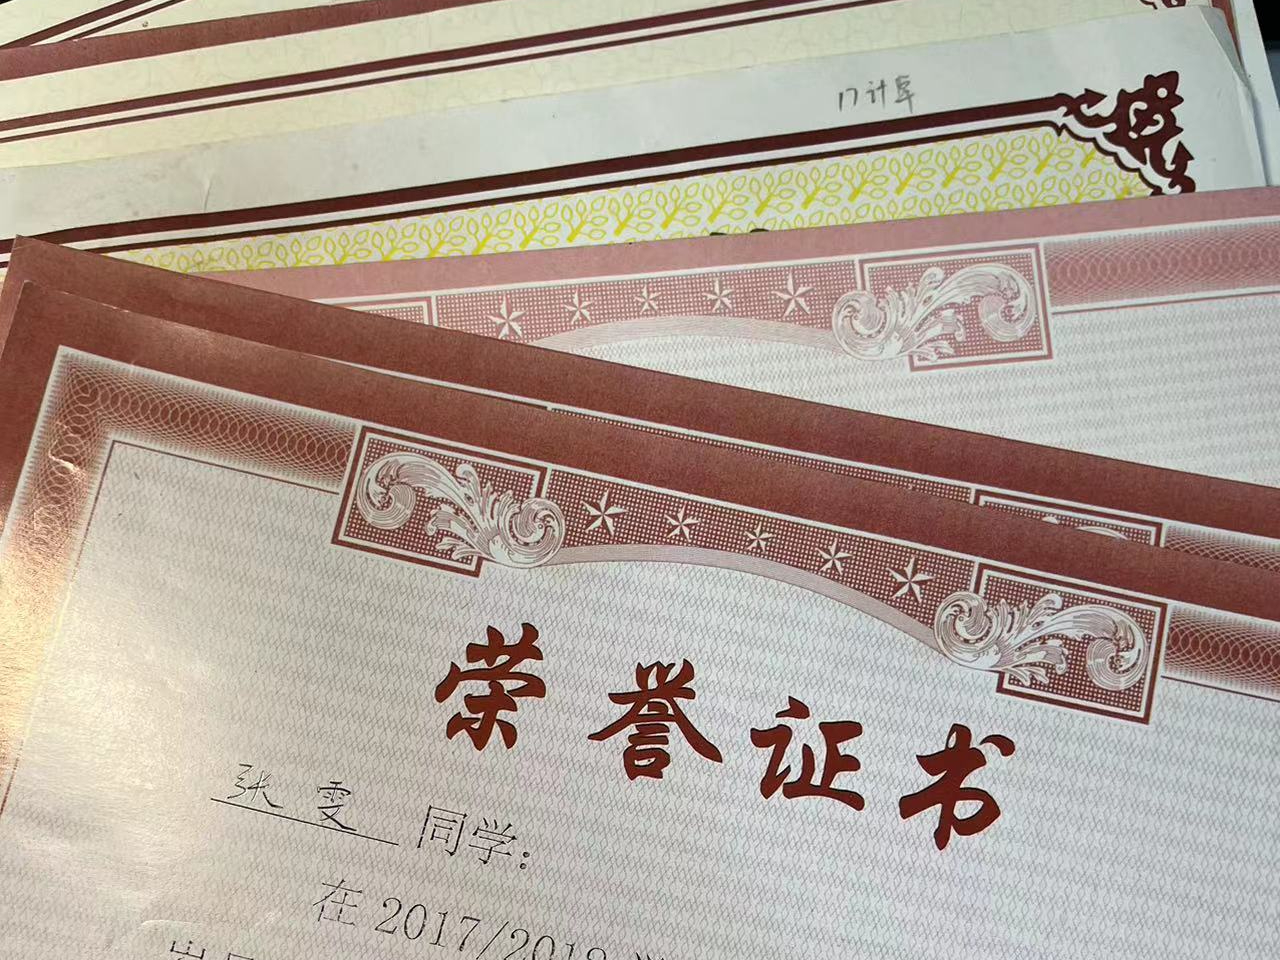 17计单
荣誉证书
张雯 同学：
在 2017/2018 学